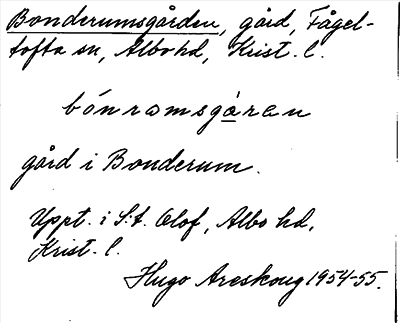 Bonderumsgården, gård, Fågel-
tofta sn, Albo hd, Krist. l.
bónramsgáran
gård i Bonderum.
Uppt. i S:t. Olof, Albo hd,
Krist. l.
Hugo Areskoug 1954-55.